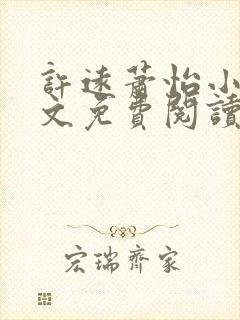 許遠蕭怡小
文免費閱讀
宏瑞齊家